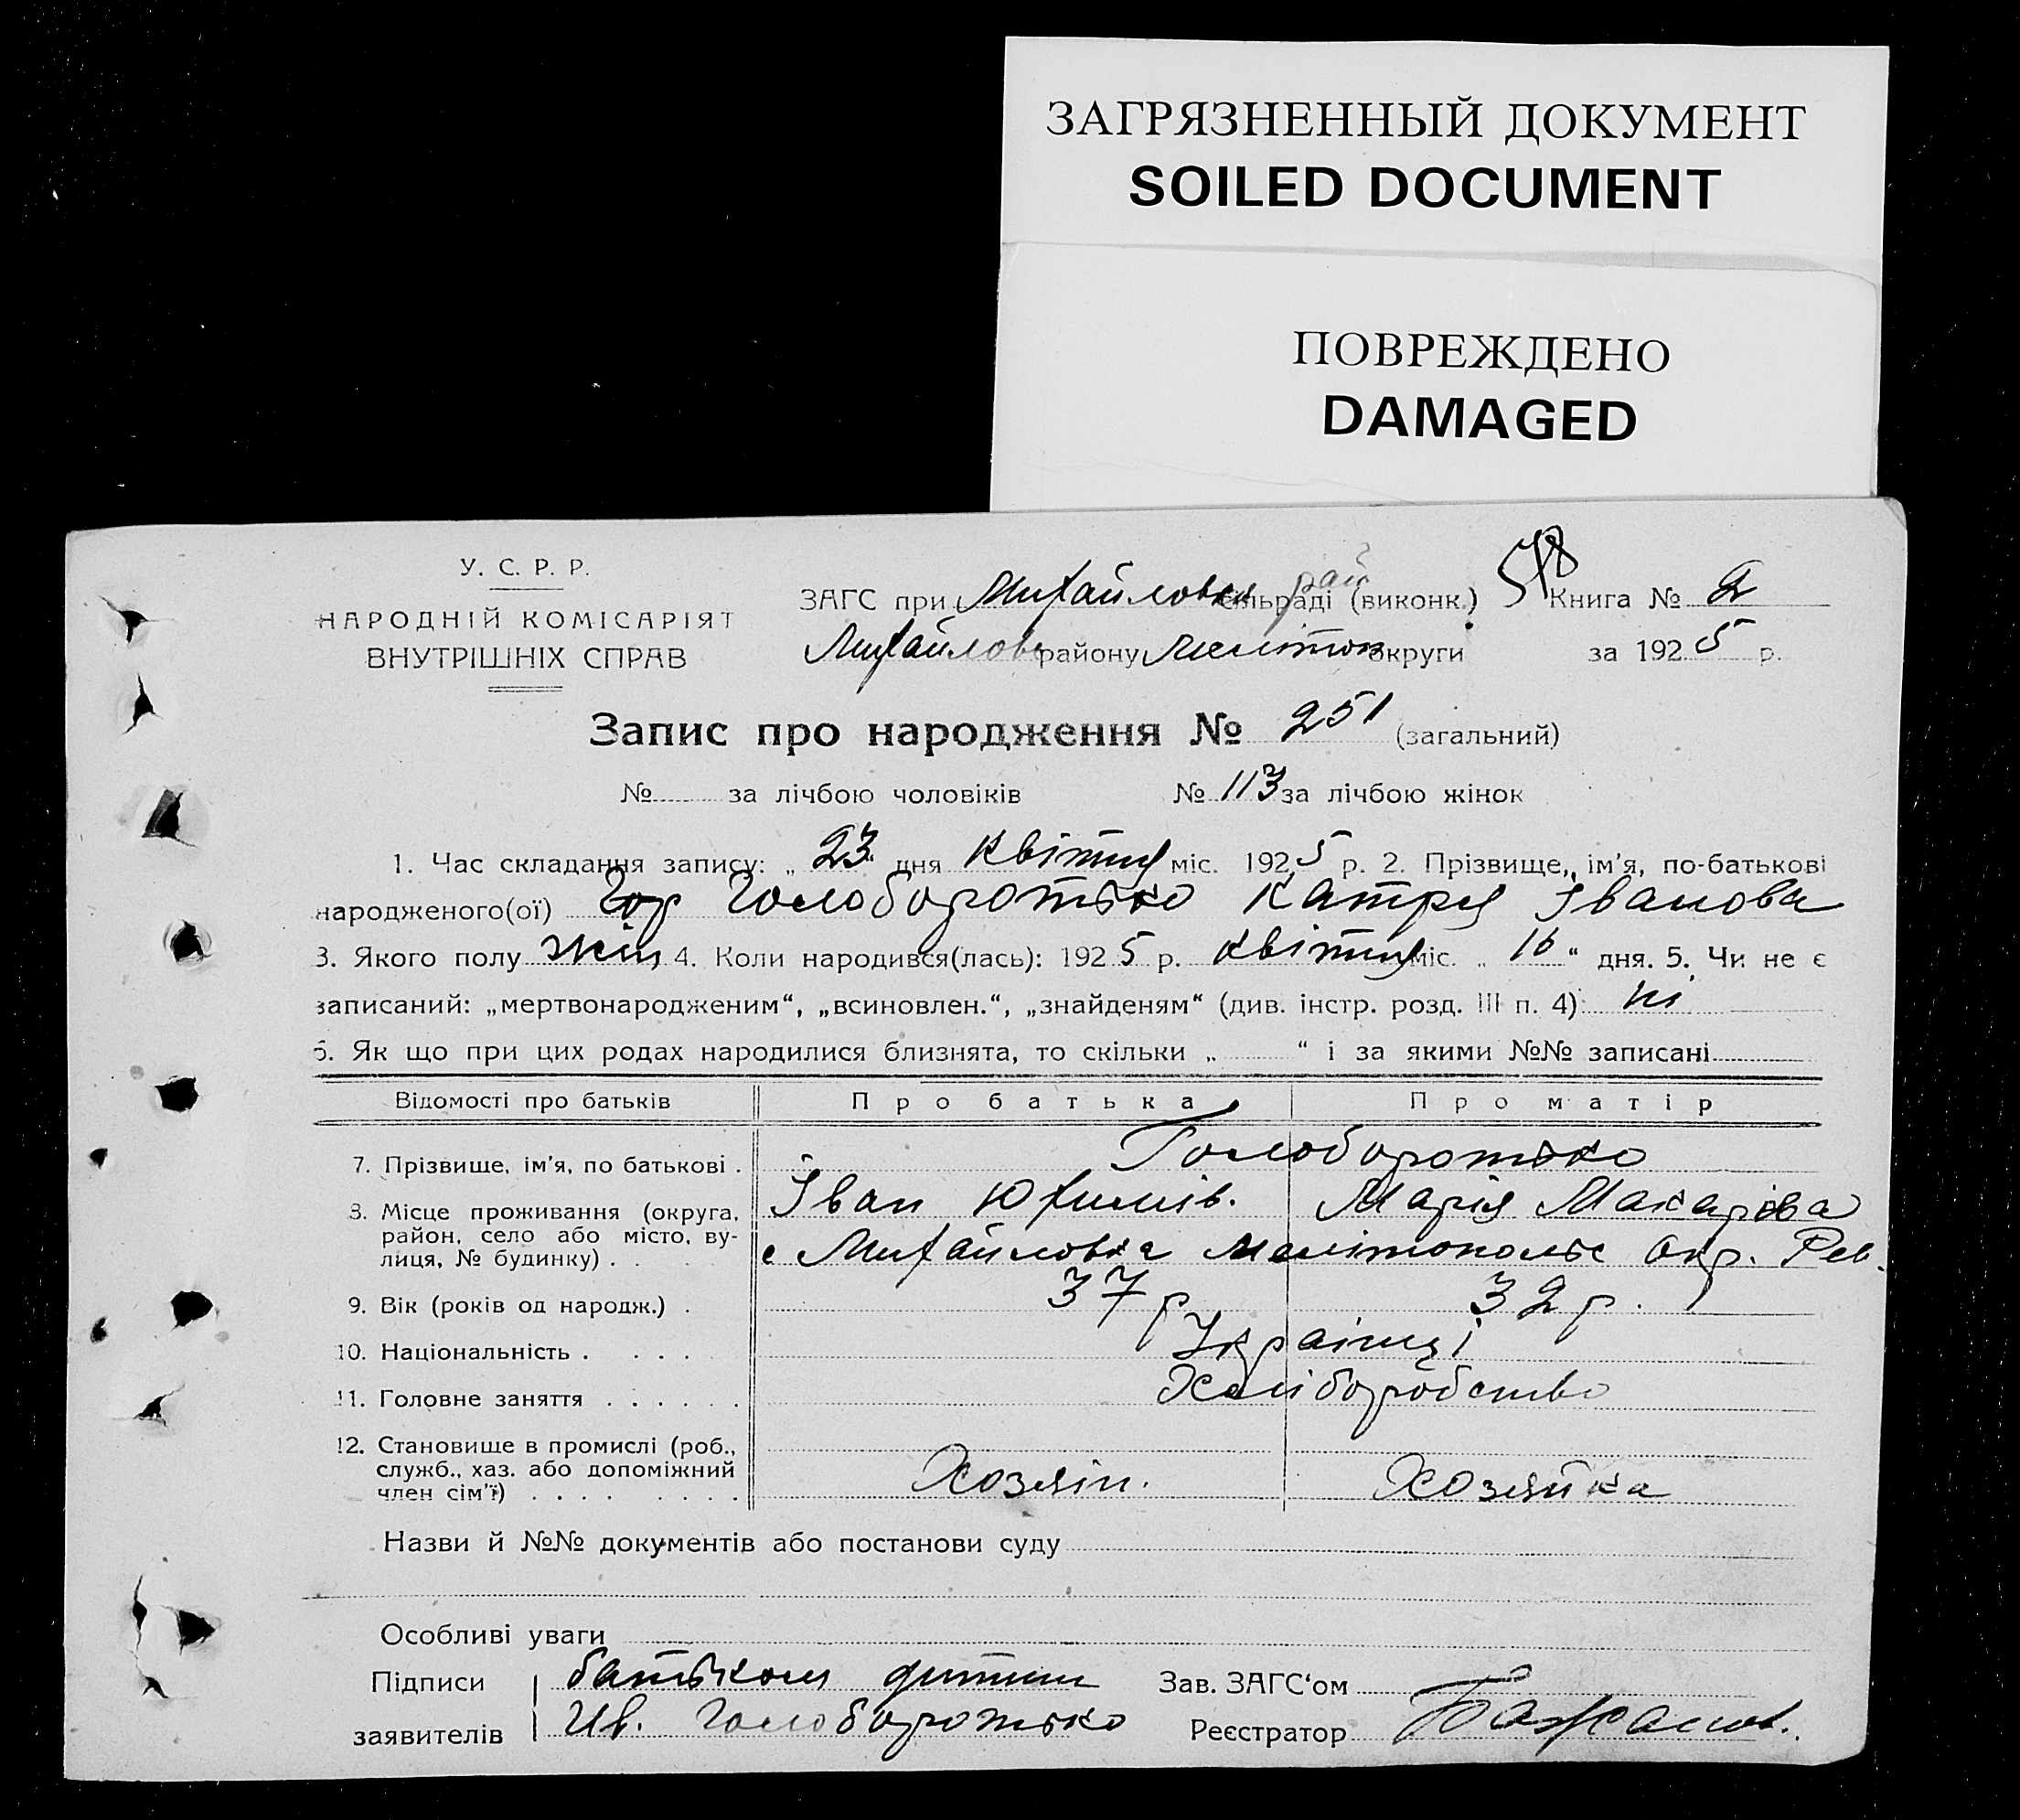 ЗАГРЯЗНЕННЫЙ ДОКУМЕНТ
SOILED DOCUMENT
ПОВРЕЖДЕНО
DAMAGED
У. С. Р. Р.
НАРОДНІЙ КОМІСАРІЯТ
ВНУТРІШНІХ СПРАВ
ЗАГС при Михайловск сільраді рай (виконк.) Книга № 2
Михайловс району Мелітоп округи за 1925 р.
Запис про народження № 251 (загальний)
№ за лічбою чоловіків № 113 за лічбою жінок
1. Час складання запису: „ 23 дня квітня міс. 1925 р. 2. Прізвище, ім'я, по-батькові
народженого(ої) Голоборотько Катря Іванова
3. Якого полу жін 4. Коли народився(лась): 1925 р. квітня міс. „ 16 “ дня. 5. Чи не є
записаний: „мертвонародженим“, „всиновлен.“, „знайденям“ (див. інстр. розд. III п. 4) ні
6. Як що при цих родах народилися близнята, то скільки „ “ і за якими №№ записані
Відомості про батьків Про батька Про матір
Голоборотько
7. Прізвище, ім'я, по батькові . Іван Юхимів. Марія Макарова
8. Місце проживання (округа,
район, село або місто, ву-
лиця, № будинку) . . с Михайловка Мелітопольс Окр.
9. Вік (років од народж.) . 37 р 32 р.
10. Національність . . . . Українці
11. Головне заняття . . . . . . Хліборобство
12. Становище в промислі (роб.,
служб., хаз. або допоміжний
член сім'ї) . . . . . . . . Хозяін. Хозяйка
Назви й №№ документів або постанови суду
Особливі уваги
Підписи батьком дитини Зав. ЗАГС'ом
заявителів Ив. Голоборотько Реєстратор